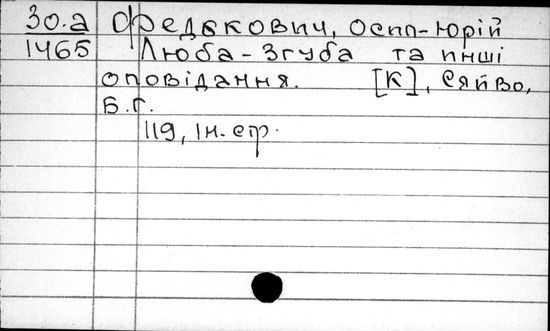 30.а Федькович, Осип-Юрій
1465 Люба-Згуба та инші
оповідання. [К], Сяйво,
Б.г.
119, Iн. стр.